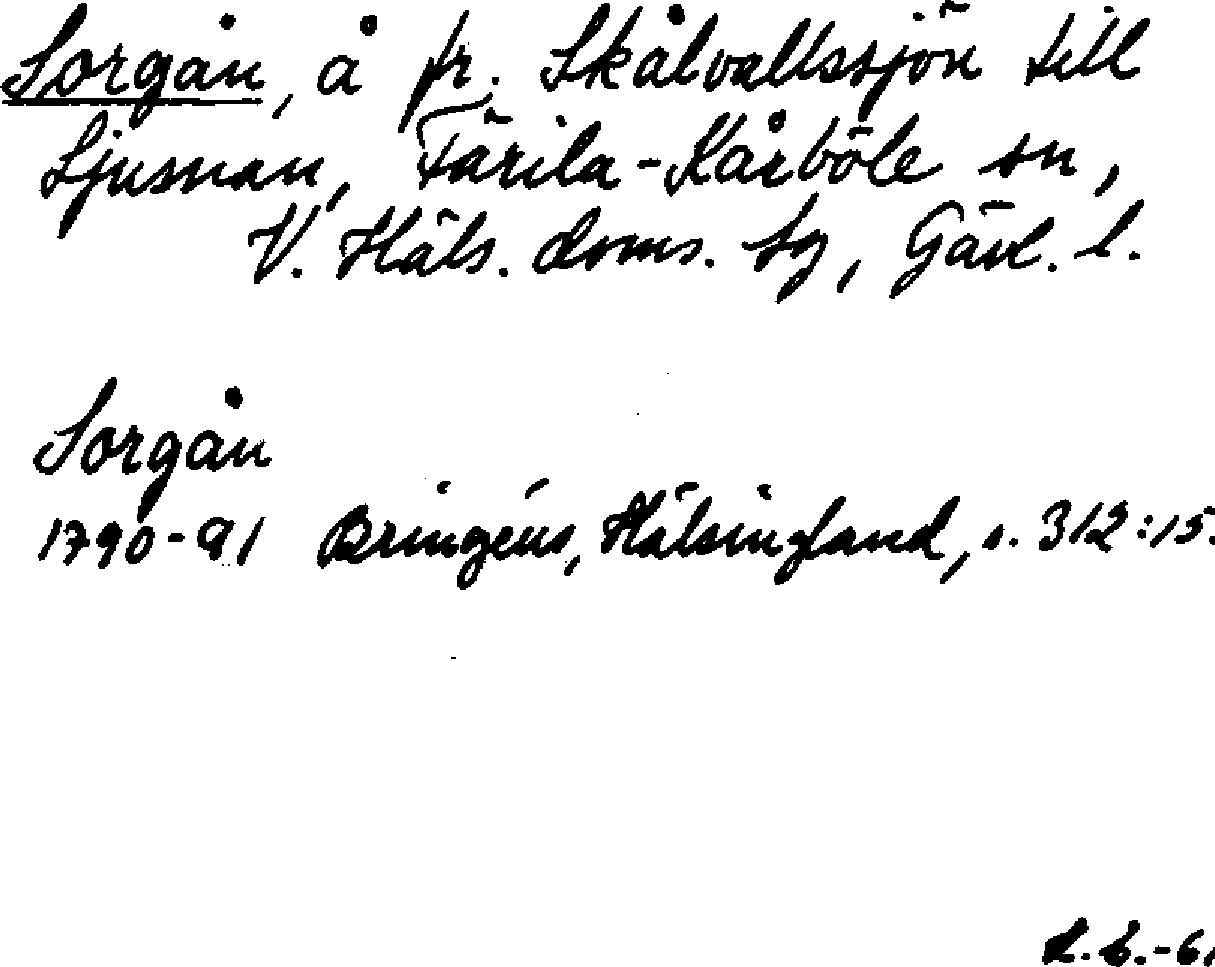 Sorgån, å fr. Skålvallssjön till
Ljusnan, Färila-Kårböle sn,
V. Häls. doms. sg, Gävl. l.
Sorgån
1790-91 Bringéus, Hälsingland, s. 312:15.